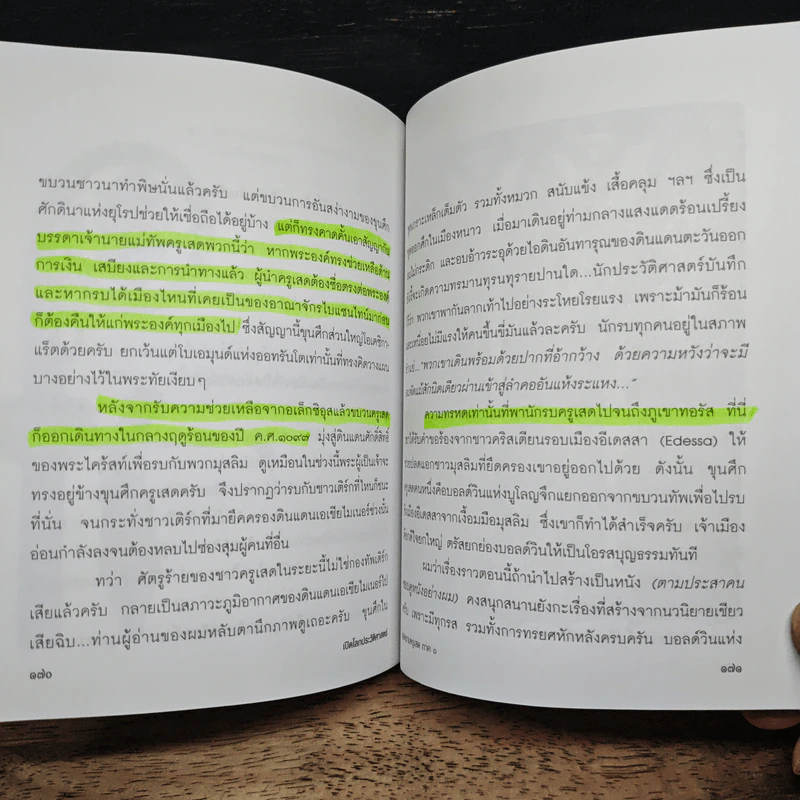 ขบวนชาวนาทำพิษนั่นแล้วครับ แต่ขบวนการอันสง่างามของขุนศึก
ศักดินาแห่งยุโรปช่วยให้เชื่อถือได้อยู่บ้าง แต่ก็ทรงคาดคั้นเอาสัญญากับ
บรรดาเจ้านายแม่ทัพครูเสดพวกนี้ว่า หากพระองค์ทรงช่วยเหลือด้าน
การเงิน เสบียงและการนำทางแล้ว ผู้นำครูเสดต้องซื่อตรงต่อพระองค์
และหากรบได้เมืองไหนที่เคยเป็นของอาณาจักรไบแซนไทน์มาก่อน
ก็ต้องคืนให้แก่พระองค์ทุกเมืองไป ซึ่งสัญญานี้ขุนศึกส่วนใหญ่โอเคซิกา-
แร็ตด้วยครับ ยกเว้นแต่โบเอมุนด์แห่งออทรันโตเท่านั้นที่ทรงคิดวางแผน
บางอย่างไว้ในพระทัยเงียบๆ
หลังจากรับความช่วยเหลือจากอเล็กซิอุสแล้วขบวนครูเสด
ก็ออกเดินทางในกลางฤดูร้อนของปี ค.ศ.๑๐๙๗ มุ่งสู่ดินแดนศักดิ์สิทธิ์
ของพระไคร้สท์เพื่อรบกับพวกมุสลิม ดูเหมือนในช่วงนี้พระผู้เป็นเจ้าจะ
ทรงอยู่ข้างขุนศึกครูเสดครับ จึงปรากฏว่ารบกับชาวเติร์กที่ไหนก็ชนะ
ที่นั่น จนกระทั่งชาวเติร์กที่มายึดครองดินแดนเอเชียไมเนอร์ช่วงนั้น
อ่อนกำลังลงจนต้องหลบไปซ่องสุมผู้คนที่อื่น
ทว่า ศัตรูร้ายของชาวครูเสดในระยะนี้ไม่ใช่กองทัพเติร์ก
เสียแล้วครับ กลายเป็นสภาวะภูมิอากาศของดินแดนเอเชียไมเนอร์ไป
เสียฉิบ...ท่านผู้อ่านของผมหลับตานึกภาพดูเถอะครับ ขุนศึกใน
เปิดโลกประวัติศาสตร์
๑๗๐
เหล็กเต็มตัว รวมทั้งหมวก สนับแข้ง เสื้อคลุม ฯลฯ ซึ่งเป็น
ศึกในเมืองหนาว เมื่อมาเดินอยู่ท่ามกลางแสงแดดร้อนเปรี้ยง
ไม่กระดิก และอบอ้าวระอุด้วยไอดินอันทารุณของดินแดนตะวันออก
จะเกิดความทรมานทุรนทุรายปานใด...นักประวัติศาสตร์บันทึก
พวกเขาพากันลากเท้าไปอย่างระโหยโรยแรง เพราะม้ามันก็ร้อน
เหนื่อยไม่มีแรงให้คนขึ้นขี่มันแล้วละครับ นักรบทุกคนอยู่ในสภาพ
"พวกเขาเดินพร้อมด้วยปากที่อ้ากว้าง ด้วยความหวังว่าจะมี
แม้สักนิดเดียวผ่านเข้าสู่ลำคออันแห้งระแหง..."
ความทรหดเท่านั้นที่พานักรบครูเสดไปจนถึงภูเขาทอรัส ที่นี่
ได้รับคำขอร้องจากชาวคริสเตียนรอบเมืองอีเดสสา (Edessa) ให้
ปลดแอกชาวมุสลิมที่ยึดครองเขาอยู่ออกไปด้วย ดังนั้น ขุนศึก
คนหนึ่งคือบอลด์วินแห่งบูโลญจึงแยกออกจากขบวนทัพเพื่อไปรบ
เมืองอีเดสสาจากเงื้อมมือมุสลิม ซึ่งเขาก็ทำได้สำเร็จครับ เจ้าเมือง
ดีใจยกใหญ่ ตรัสยกย่องบอลด์วินให้เป็นโอรสบุญธรรมทันที
ผมว่าเรื่องราวตอนนี้ถ้านำไปสร้างเป็นหนัง (ตามประสาคน
หนังอย่างผม) คงสนุกสนานยังกะเรื่องที่สร้างจากนวนิยายเชียว
เพราะมีทุกรส รวมทั้งการทรยศหักหลังครบครัน บอลด์วินแห่ง
ภาค ๑
๑๗๑